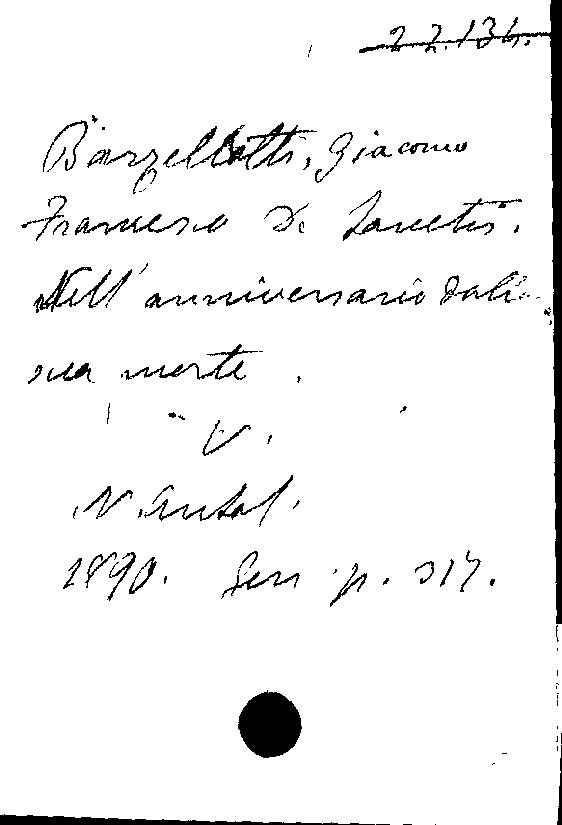 22.134.
Barzellotti, Giacomo
Francesco De Sanctis.
Nell' anniversario dalla
sua morte.
V.
N. Antol.
1890. Gen p. 317.